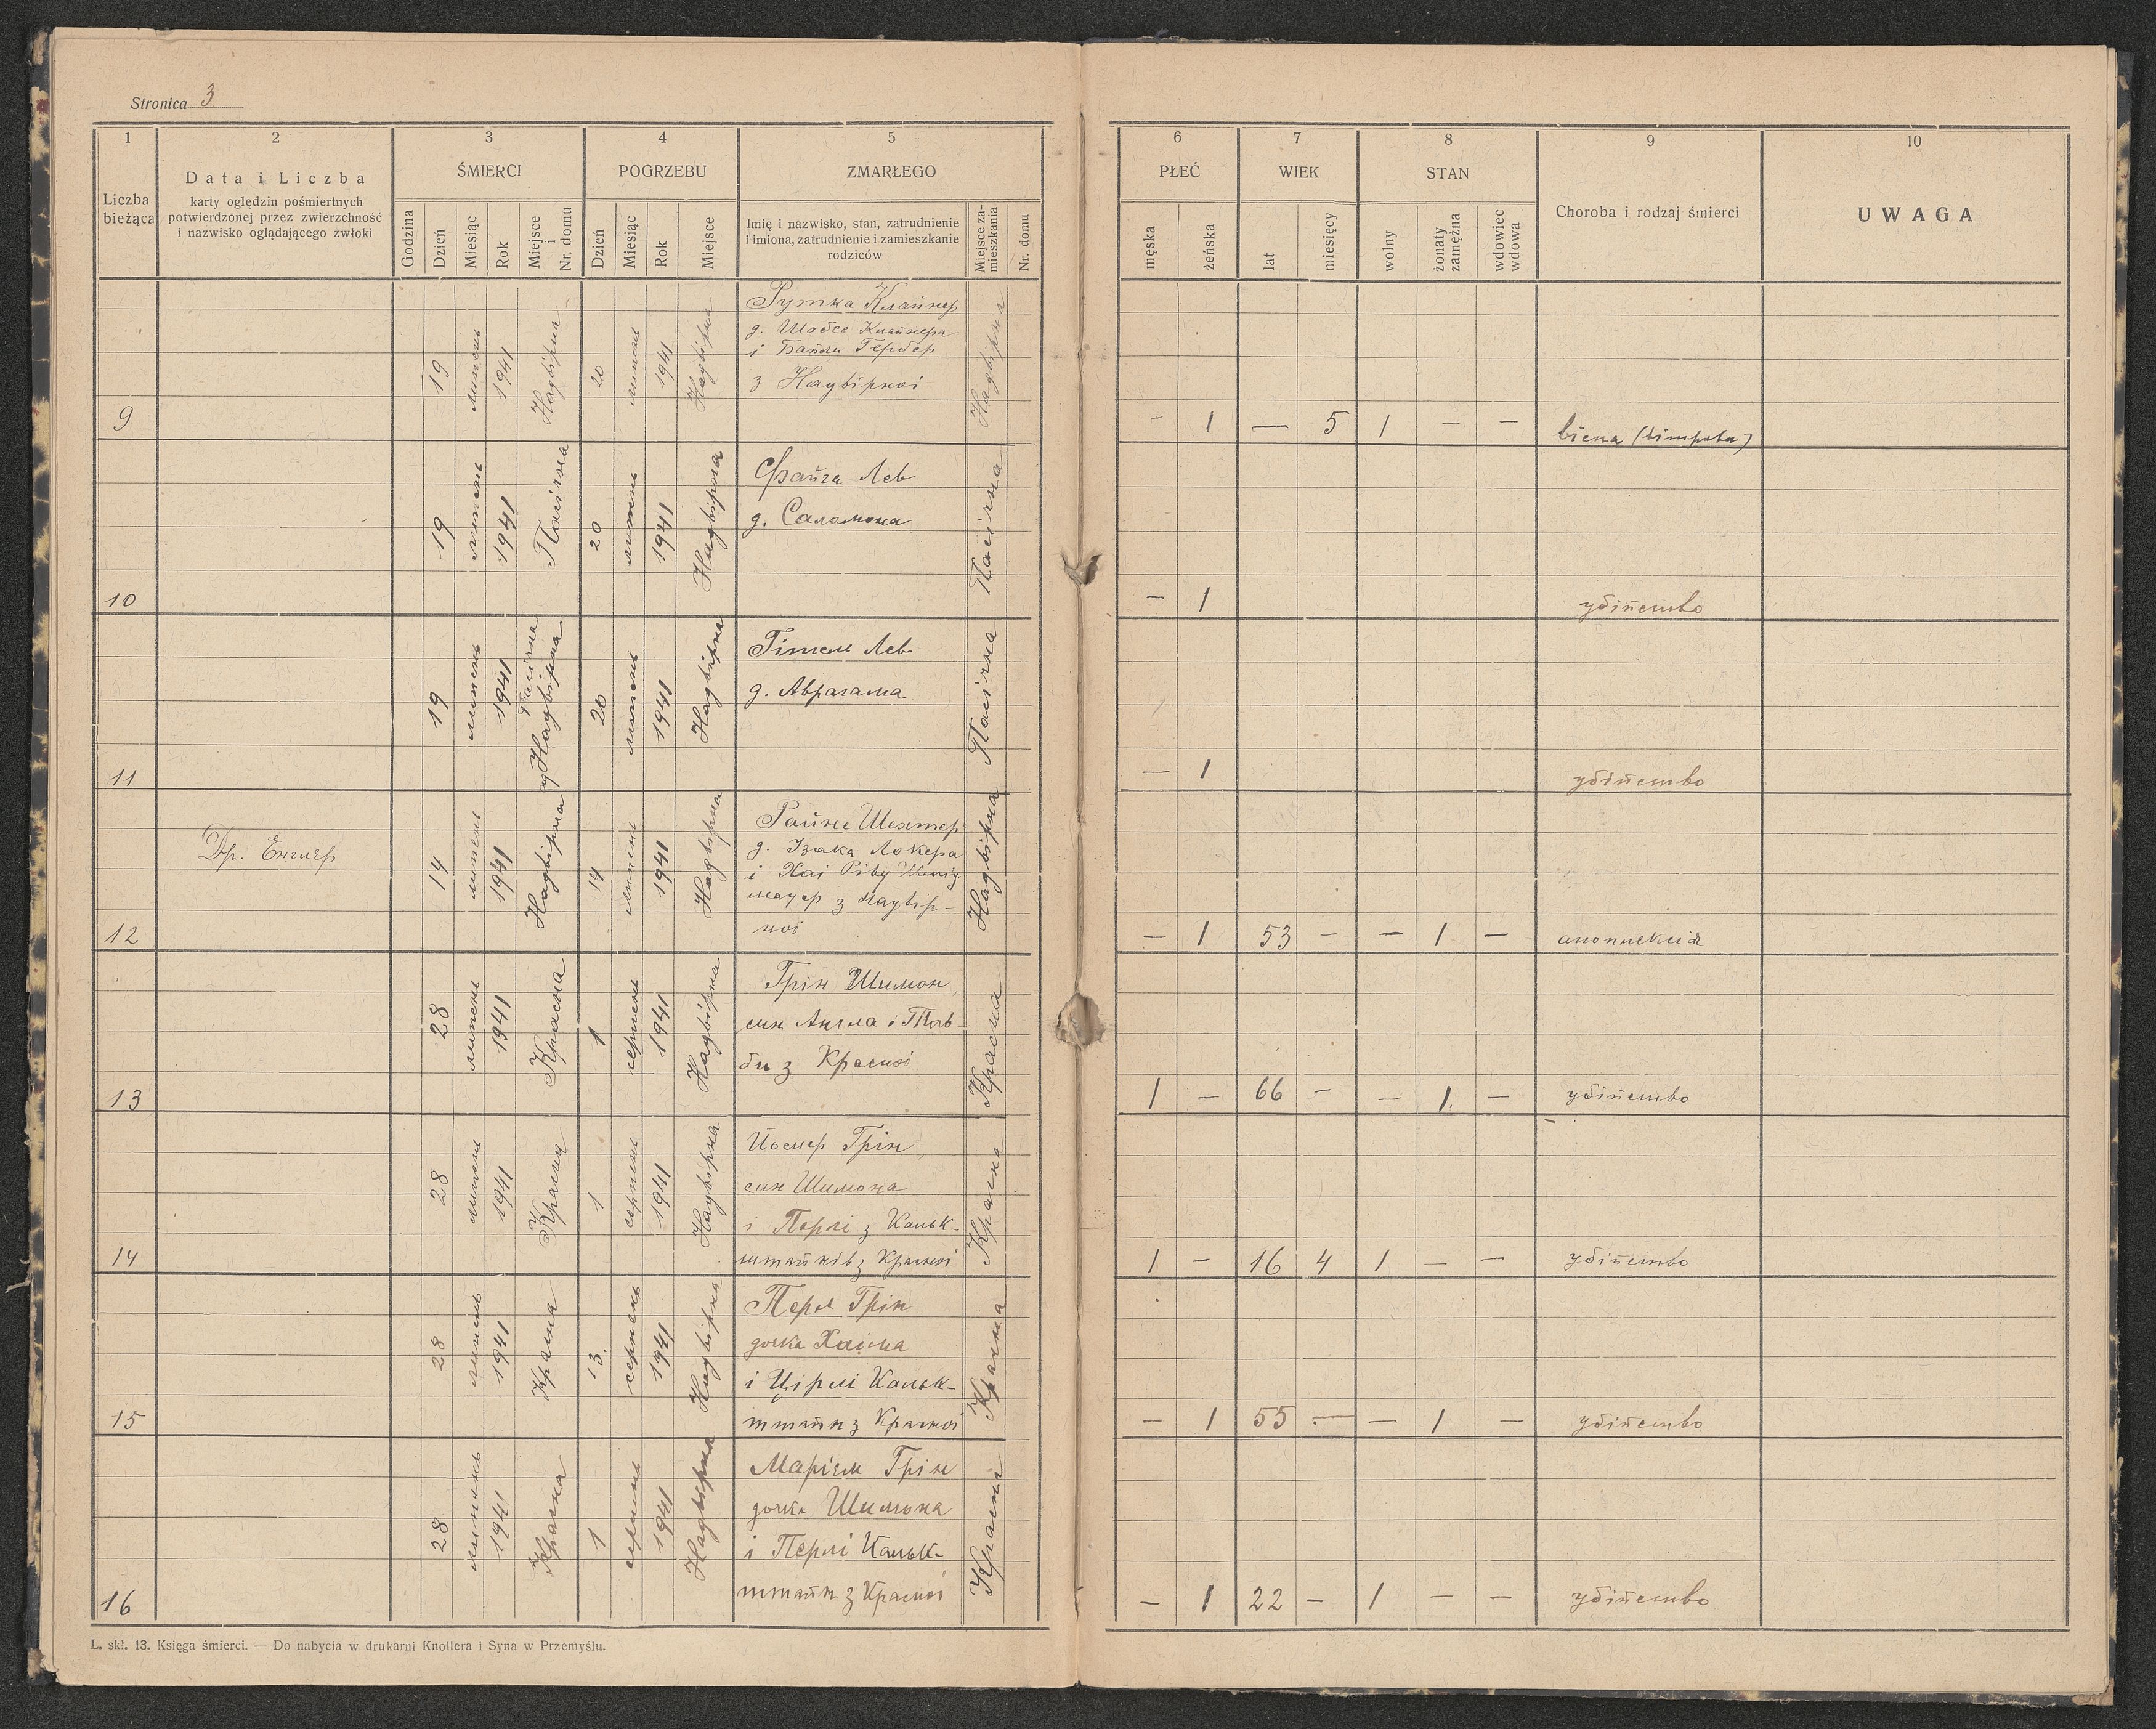 Stronica 3
1 2 3 4 5 6 7 8 9 10
Liczba bieżąca
Data i Liczba
karty oględzin pośmiertnych
potwierdzonej przez zwierzchność
i nazwisko oglądającego zwłoki
ŚMIERCI
Godzina
Dzień
Miesiąc
Rok
Miejsce i Nr. domu
POGRZEBU
Dzień
Miesiąc
Rok
Miejsce
ZMARŁEGO
Imię i nazwisko, stan, zatrudnienie
i imiona, zatrudnienie i zamieszkanie
rodziców
Miejsce za-
mieszkania
Nr. domu
PŁEĆ
męska
żeńska
WIEK
lat
miesięcy
STAN
wolny
żonaty
zamężna
wdowiec
wdowa
Choroba i rodzaj śmierci
UWAGA
9
19 липень 1941 Надвірна
20 липень 1941 Надвірна
Рутка Клайнер
д. Шабсе Клайнера
і Байли Гербер
з Надвірної
Надвірна
- 1 — 5 1 — —
віспа (вітрова)
10
19 липень 1941 Пасічна
20 липень 1941 Надвірна
Файга Лев
д. Саломона
Пасічна
- 1
убійство
11
19 липень 1941 Пасічна Надвірна
20 липень 1941 Надвірна
Гітель Лев
д. Аврагама
Пасічна
— 1
убійство
12
Др. Енглер
14 липень 1941 Надвірна
14 липень 1941 Надвірна
Райне Шехтер
д. Ізака Локера
і Хаї
з Надвір-
ної
Надвірна
— 1 53 - — 1 —
апоплексія
13
28 липень 1941 Красна
1 серпень 1941 Надвірна
Грін Шимон,
син
з Красної
Красна
1 — 66 - — 1. —
убійство
14
28 липень 1941 Красна
1 серпень 1941 Надвірна
Грін,
син Шимона
і Перлі з Кальк-
штайнів з Красної
Красна
1 - 16 4 1 — —
убійство
15
28 липень 1941 Красна
13. серпень 1941 Надвірна
Перл Грін
дочка Хаїма
і Цірлі Кальк-
штайн з Красної
Красна
— 1 55 — — 1 —
убійство
16
28 липень 1941 Красна
1 серпень 1941 Надвірна
Марієм Грін
дочка Шимона
і Перлі Кальк-
штайн з Красної
Красна
— 1 22 - 1 — —
убійство
L. skł. 13. Księga śmierci. — Do nabycia w drukarni Knollera i Syna w Przemyślu.